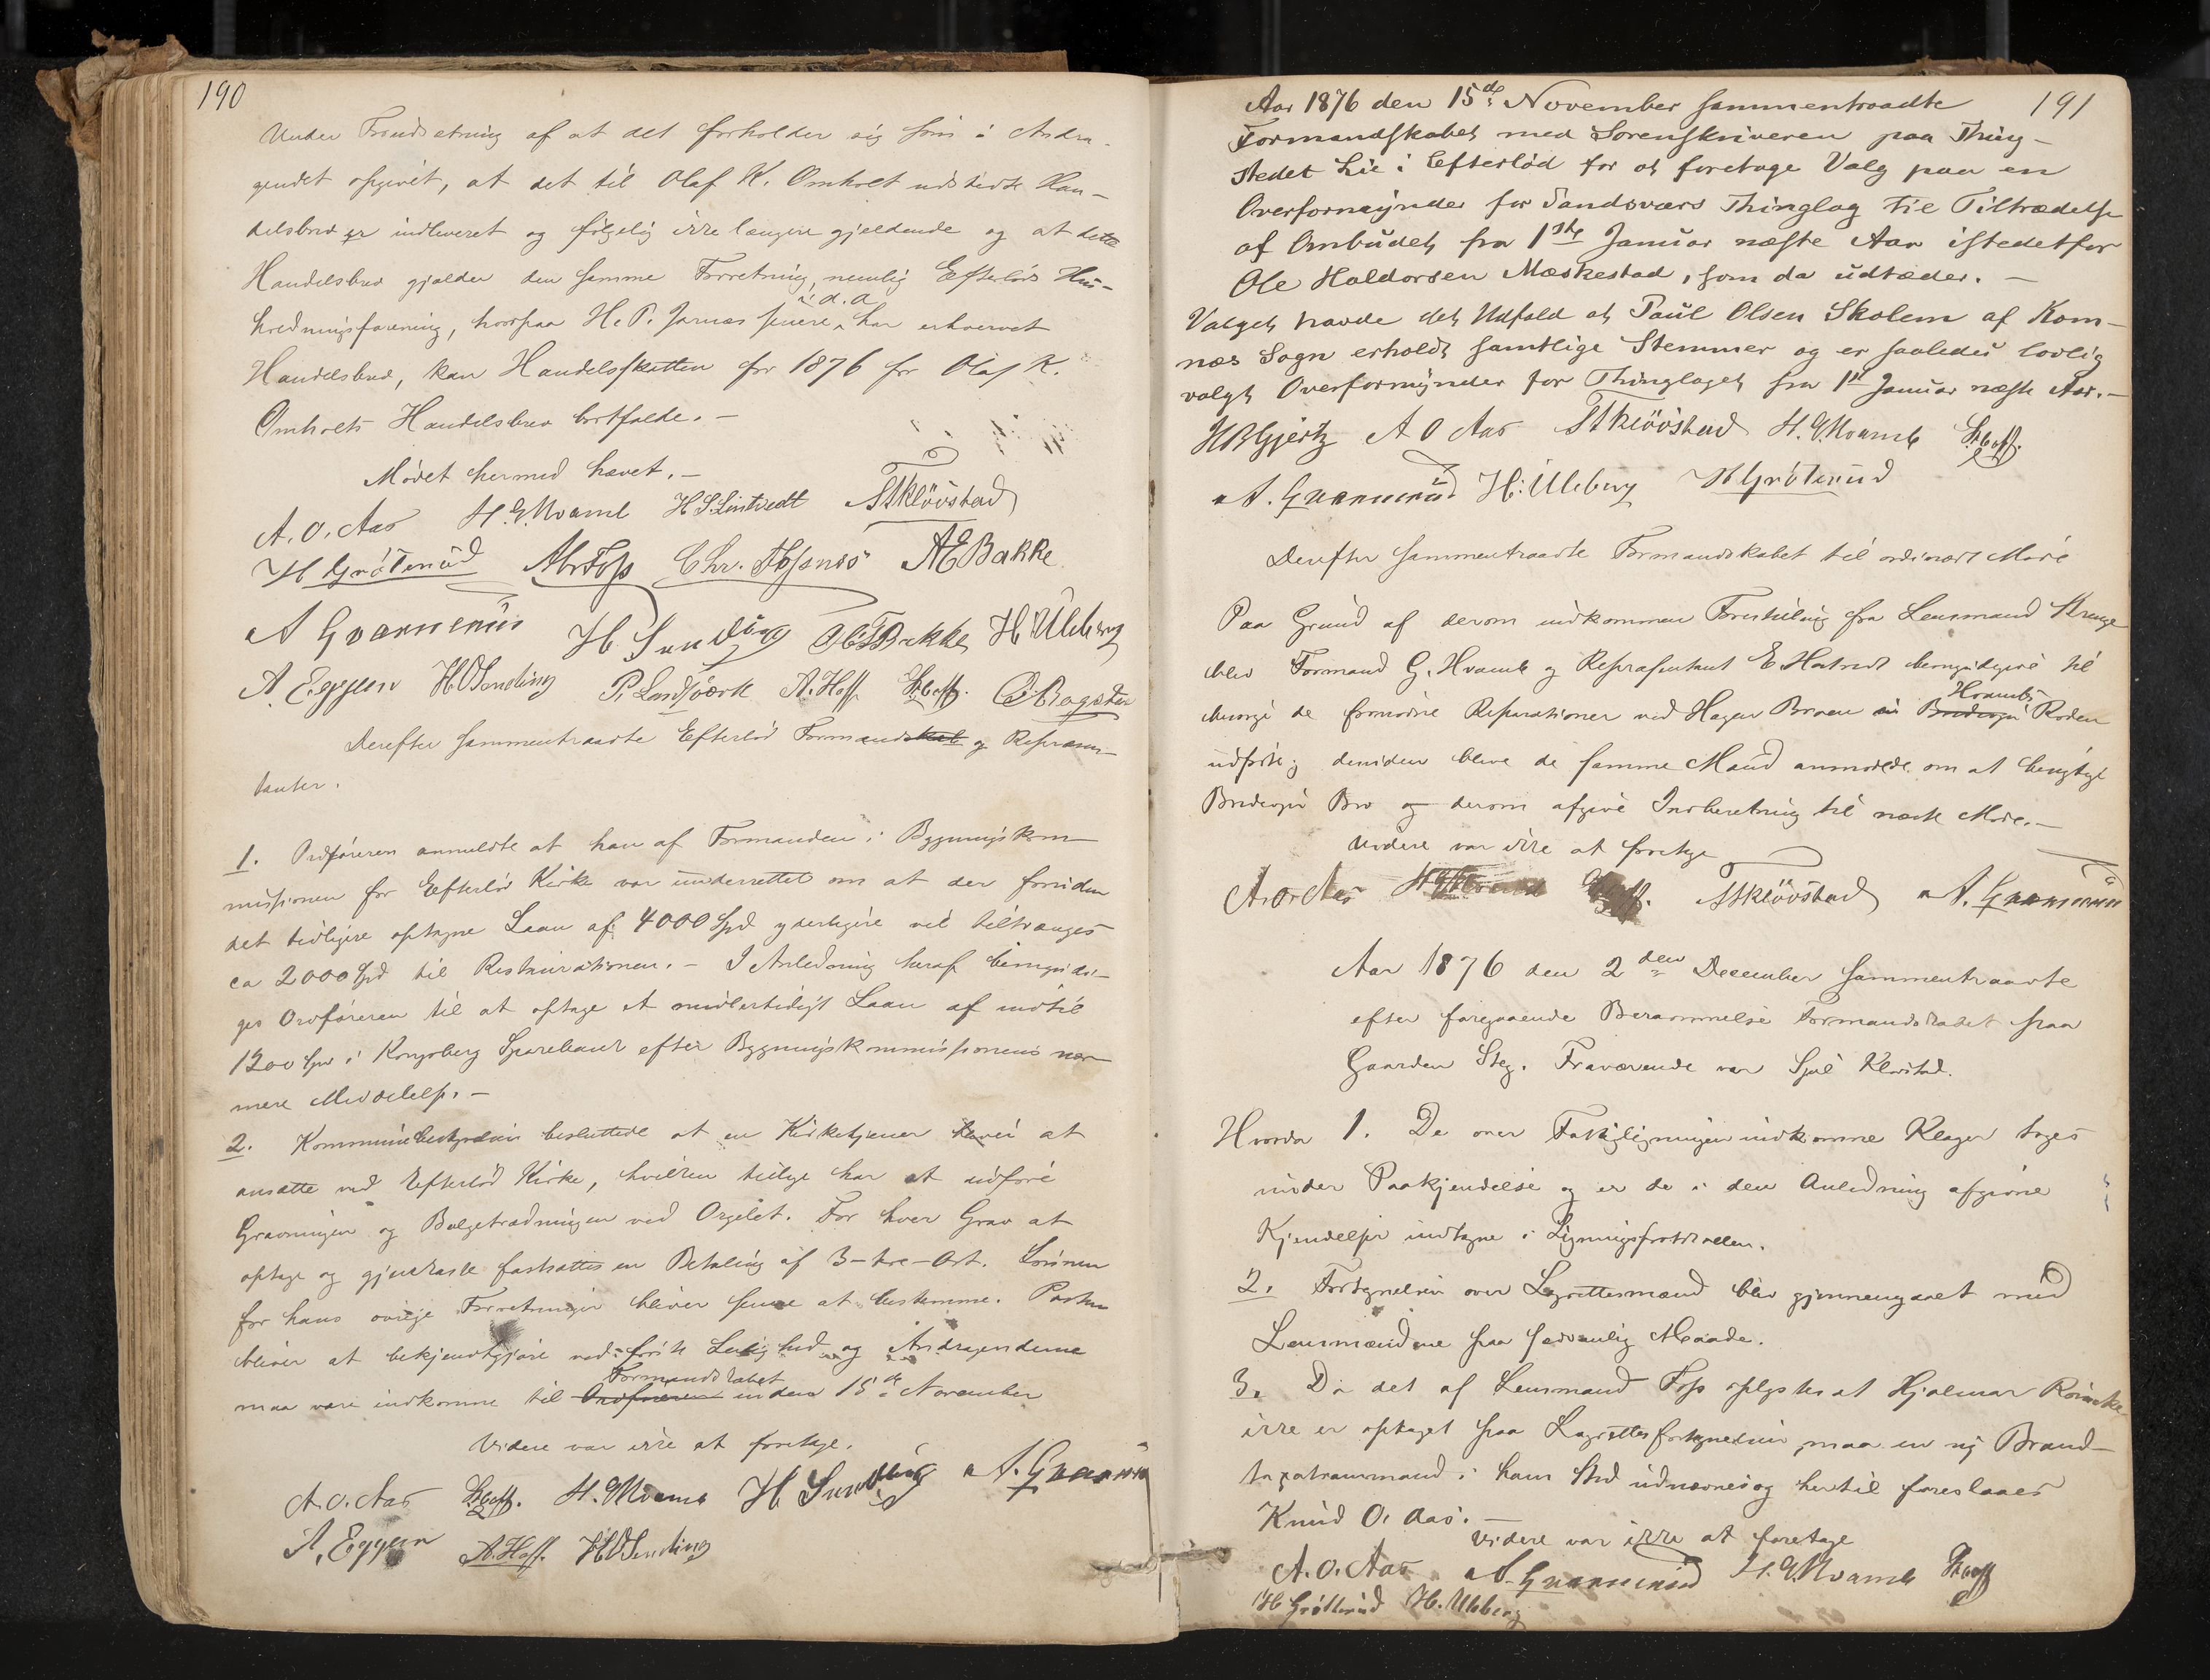 190
Under Forudsætning af at det forholder sig som i Andra-
gendet opgivet, at det til Olaf K. Omholt udstedte Han-
delsbrev er indleveret og følgelig ikke længere gjældende og at dette
Handelsbrev gjælder den samme Forretning, nemlig Efteløts Hus-
holdningsforening, hvorpaa H. P. Jarnæs senere i d. a. har erhvervet
Handelsbrev, kan Handelsskatten for 1876 for Olaf K.
Omholts Handelsbrev bortfalde. –
Mødet hermed hævet. –
A. O. Aas H. G. Hvamb H S. Lintvedt S T Kløvstad
H Grøterud Abr Foss Chr. A E Bakke
A Gvarnerud H Sunding Bakke H. Uleberg
A. Eggen H. O. Sending P. Landsværk A. Hoff C. Bagstev
Derefter sammentraadte Efteløt Formandskab og Repræsen-
tanter.
1. Ordføreren anmeldte at han af Formanden i Bygningskom-
missionen for Efteløt Kirke var underrettet om at der foruden
det tidligere optagne Laan af 4000 Spd yderligere vil tiltrænges
ca 2000 Spd til Restaurationen. – I Anledning heraf bemyndi-
ges Ordføreren til at optage et midlertidigt Laan af indtil
1200 Spd i Kongsberg Sparebank efter Bygningskommissionens nær-
mere Meddelelse. –
2. Kommunebestyrelsen besluttede at en Kirketjener bliver at
ansætte ved Efteløt Kirke, hvilken tillige har at udføre
Gravningen og Bælgetrædningen ved Orgelet. For hver Grav at
optage og gjenkaste fastsættes en Betaling af 3 – tre – Ort. Lønnen
for hans øvrige Forretninger bliver senere at bestemme. Posten
bliver at bekjendtgjøre ved første Leilighed og Andragenderne
maa være indkomne til Ordføreren Formandskabet inden 15de November
Videre var ikke at foretage.
A. O. Aas H. G. Hvamb H Sunding A. Gvarnerud
A. Eggen A. Hoff. H. O. Sending
191
Aar 1876 den 15de November sammentraadte
Formandskabet med Sorenskriveren paa Thing-
stedet Lie i Efteløt for at foretage Valg paa en
Overformynder for Sandsværs Thinglag til Tiltrædelse
af Ombudet fra 1ste Januar næste Aar istedetfor
Ole Haldorsen Mæskestad, som da udtræder. –
Valget havde det Udfald at Paul Olsen Skolem af Kom-
næs Sogn erholdt samtlige Stemmer og er saaledes lovlig
valgt Overformynder for Thinglaget fra 1st Januar næste Aar. –
H B Gjertz A O Aas S T Kløvstad H. G. Hvamb
A. Gvarnerud H. Uleberg H Grøterud
Derefter sammentraadte Formandskabet til ordinært Møde
Paa Grund af derom indkommen Forestilling fra Lensmand
blev Formand G. Hvamb og Repræsentant E. bemyndigede til
besørge de fornødne Reparationer ved Hagen Broen i Hvambs Roden
udført; desuden bleve de samme Mænd anmodede om at besigtige
Bro og derom afgive Indberetning til næste Møde. –
Videre var ikke at foretage
A. O. Aas S T Kløvstad A. Gvarnerud
Aar 1876 den 2den December sammentraadte
efter foregaaende Berammelse Formandskabet paa
Gaarden Steg. Fraværende var Sjul Kløvstad.
Hvorda 1. De over Fattigligningen indkomne Klager toges
under Paakjendelse og er de i den Anledning afgivne
Kjendelser indtagne i Ligningsprotokollen.
2. Fortegnelsen over Lagrettesmænd blev gjennemgaaet med
Lensmændene paa sædvanlig Maade.
3. Da det af Lensmand Foss oplystes at Hjalmar
ikke er optaget paa Lagrettesfortegnelsen, maa en ny Brand-
taxationsmand i hans Sted udnævnes og hertil foreslaaes
Knud O. Aas. –
Videre var ikke at foretage
A. O. Aas A. Gvarnerud H. G. Hvamb
H Grøterud H. Uleberg